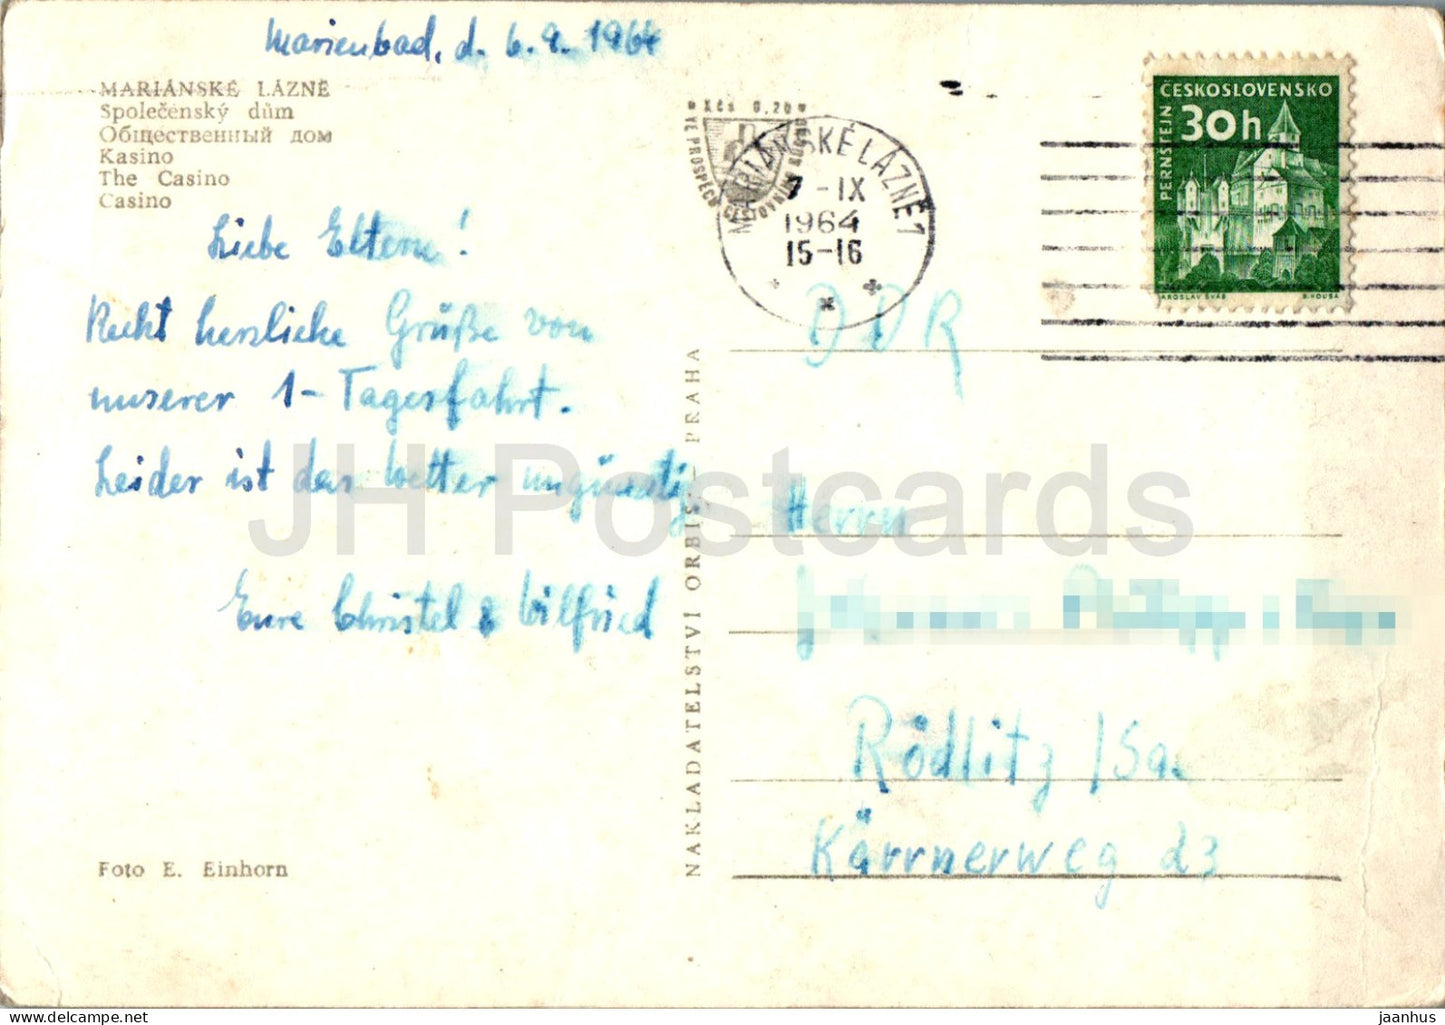 Marienbad, d. 6.9.1964
MARIÁNSKÉ LÁZNĚ
Společenský dům
Общественный дом
Kasino
The Casino
Casino
Liebe Eltern!
Recht herzliche Grüße von
unserer 1-Tagesfahrt.
Leider ist das Wetter ungünstig
Eure Christel & Wilfried
Foto E. Einhorn
NAKLADATELSTVÍ ORBIS - PRAHA
Kčs 0,20
VE PROSPĚCH CESTOVNÍHO
MARIÁNSKÉ LÁZNĚ 1
-IX
1964
15-16
ČESKOSLOVENSKO
30h
PERNŠTEJN
JAROSLAV ŠVÁB
B. HOUSA
DDR
Herrn
Rödlitz /Sa.
Kärrnerweg 23
JH Postcards
jaanhus @ delcampe.net